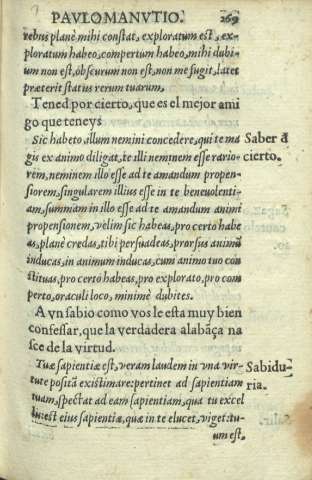 PAVLO MANVTIO. 269
rebus planè mihi constat, exploratum est, ex-
ploratum habeo, compertum habeo, mihi dubi-
um non est, obscurum non est, non me fugit, latet
præterit status rerum tuarum,
Tened por cierto, que es el mejor ami
go que teneys
Sic habeto illum nemini concedere, qui te ma
gis ex animo diligat, te illi neminem esse rario-
rem, neminem illo esse ad te amandum propen-
siorem, singularem illius esse in te beneuolenti-
am, summam in illo esse ad te amandum animi
propensionem, velim sic habeas, pro certo habe
as, planè credas, tibi persuadeas, prorsus animũ
inducas, in animum inducas, cum animo tuo con
stituas, pro certò habeas, pro explorato, pro com
perto, oraculi loco, minimè dubites.
A vn sabio como vos le esta muy bien
confessar, que la verdadera alabãça na
sce de la virtud.
Tuæ sapientiæ est, veram laudem in vna vir-
tute positã existimare: pertinet ad sapientiam
tuam, spectat ad eam sapientiam, qua tu excel
lis: est eius sapientiæ, quæ in te elucet, viget: tu-
um est,
Saber ď
cierto.
Sabidu-
ria.